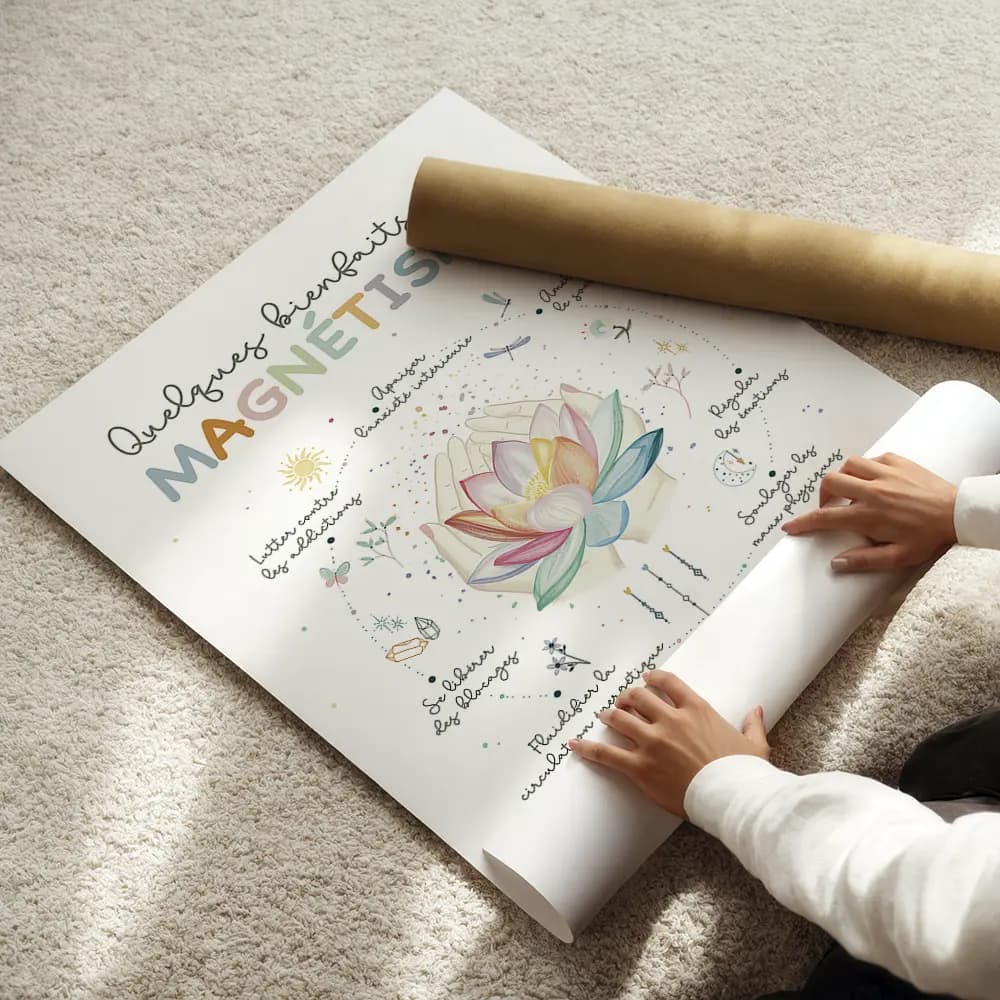 Quelques bienfaits
MAGNÉTIS
le
Apaiser
l'anxiété intérieure
Réguler
les émotions
Lutter contre
les addictions
Soulager les
maux physiques
Se libérer
des blocages
Fluidifier la
circulation énergétique